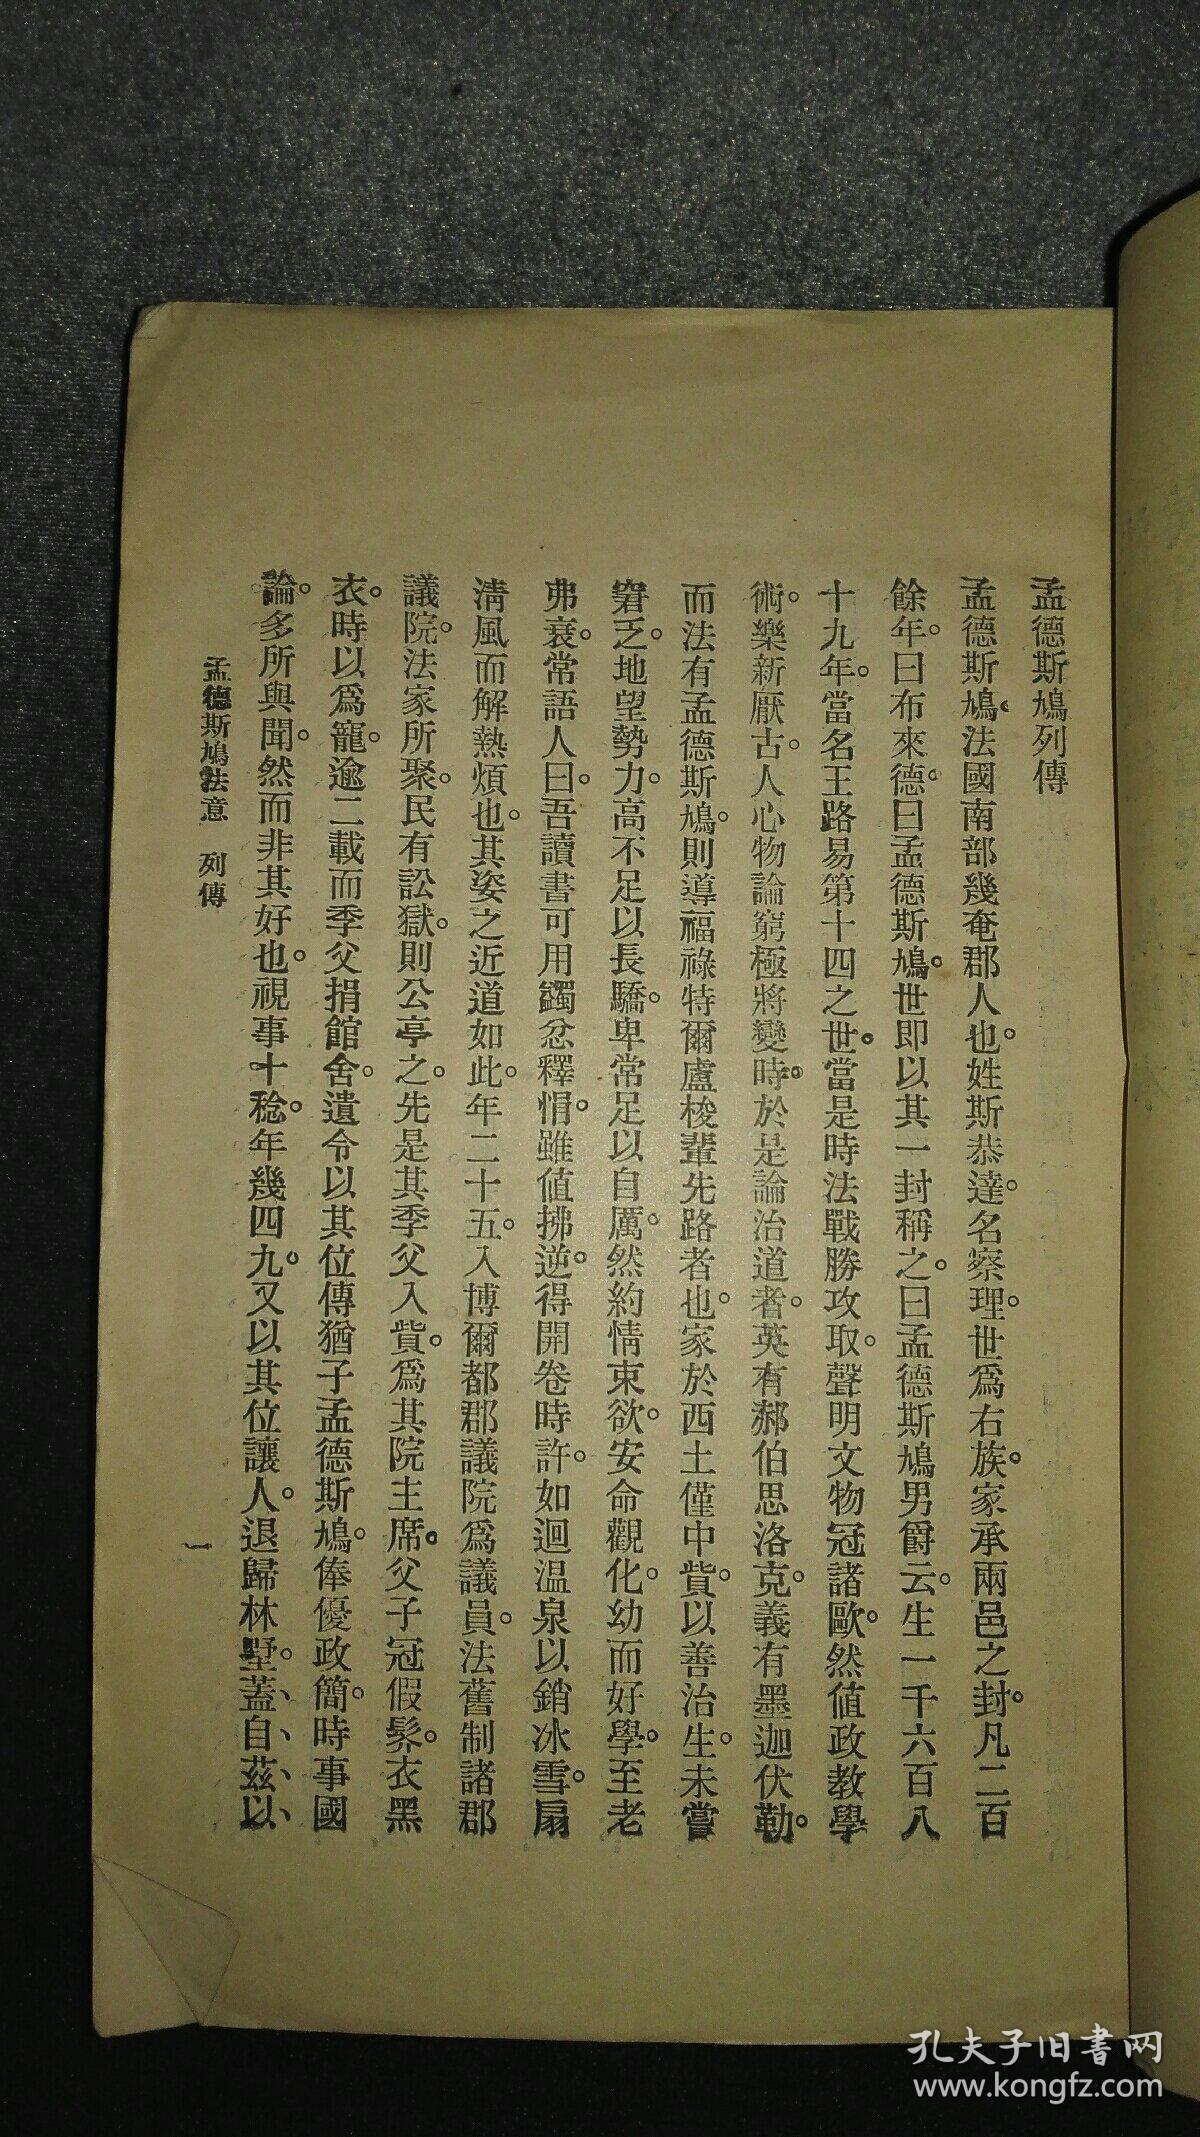 孟德斯鳩列傳
孟德斯鳩。法國南部幾奄郡人也。姓斯恭達。名察理。世爲右族。家承兩邑之封。凡二百
餘年。曰布來德。曰孟德斯鳩。世即以其一封稱之。曰孟德斯鳩男爵云。生一千六百八
十九年。當名王路易第十四之世。當是時法戰勝攻取。聲明文物冠諸歐。然値政教學
術。樂新厭古。人心物論窮極將變時。於是論治道者。英有郝伯思洛克。義有墨迦伏勒。
而法有孟德斯鳩。則導福祿特爾盧梭輩先路者也。家於西土僅中貲。以善治生。未嘗
窘乏。地望勢力。高不足以長驕。卑常足以自厲。然約情束欲。安命觀化。幼而好學。至老
弗衰。常語人曰。吾讀書可用蠲忿釋悁。雖値拂逆。得開卷時許。如迴溫泉以銷冰雪。扇
淸風而解熱煩也。其姿之近道如此。年二十五。入博爾都郡議院爲議員。法舊制諸郡
議院。法家所聚。民有訟獄。則公亭之。先是其季父入貲。爲其院主席。父子冠假髢。衣黑
衣。時以爲寵。逾二載而季父捐館舍。遺令以其位傳猶子孟德斯鳩。俸優政簡。時事國
論。多所與聞。然而非其好也。視事十稔。年幾四九。又以其位讓人。退歸林墅。蓋、自、茲、以、
孟德斯鳩法意 列傳
一
孔夫子旧书网
www.kongfz.com